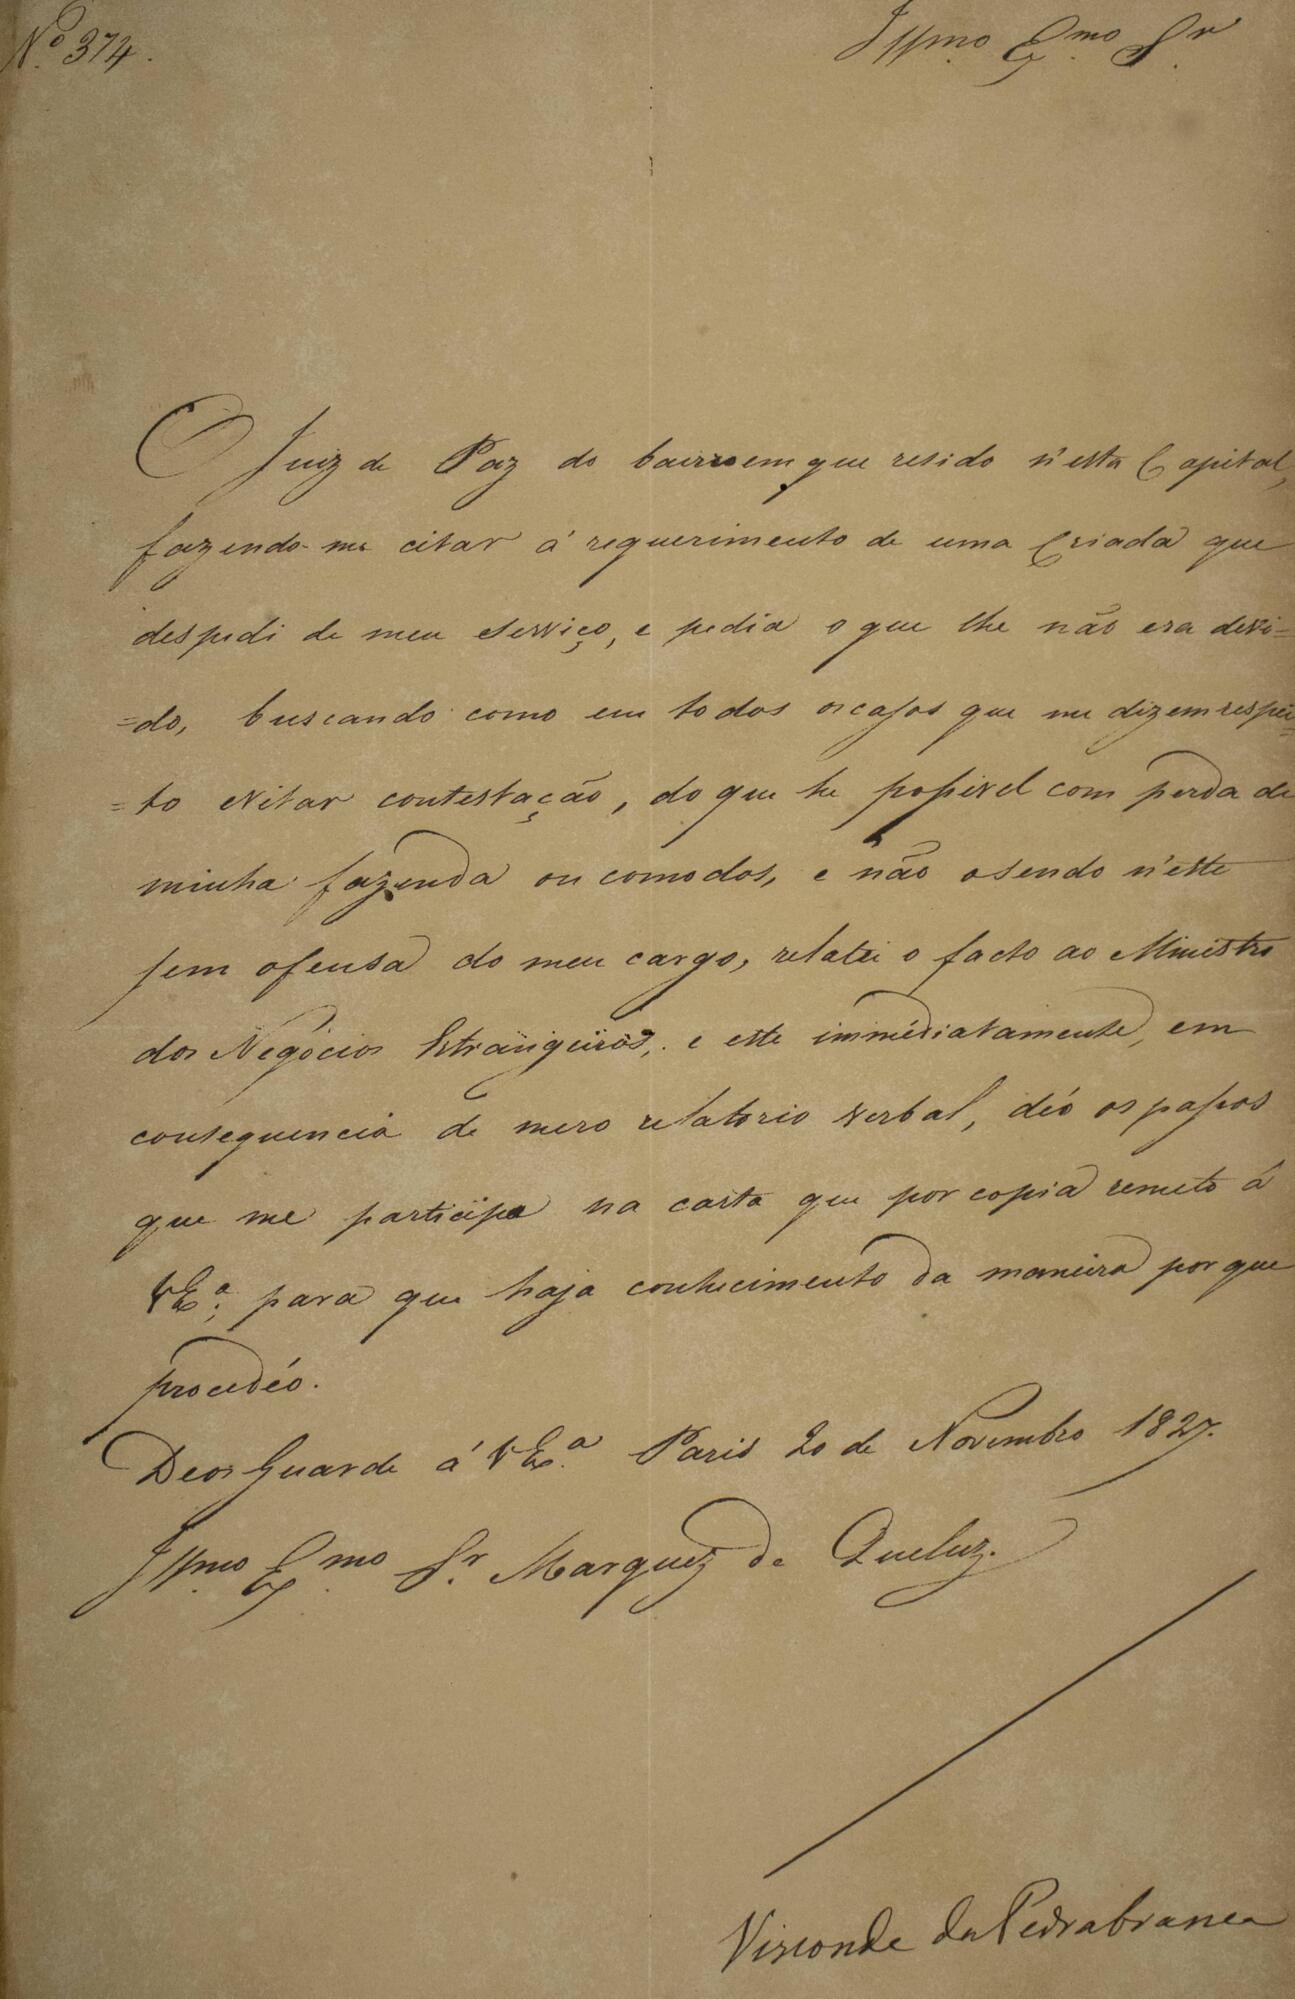 Nº 374.
Illmo Exmo Sr
O Juiz de Paz do bairro em que resido n'esta Capital,
fazendo-me citar á requerimento de uma Criada que
despedi de meu serviço, e pedia o que lhe não era devi=
=do, buscando como em todos os casos que me dizem respei=
=to evitar contestação, do que he possivel com perda de
minha fazenda ou comodos, e não o sendo n'este
sem ofensa do meu cargo, relatei o facto ao Ministro
dos Negócios Estrangeiros, e este immédiatamente, em
consequencia de mero relatorio verbal, déo os passos
que me participa na carta que por copia remeto á
VEª, para que haja conhecimento da maneira porque
procedéo.
Deos Guarde á VEª. Paris 20 de Novembro 1827.
Illmo Exmo Sr. Marquez de Queluz.
Visconde da Pedrabranca